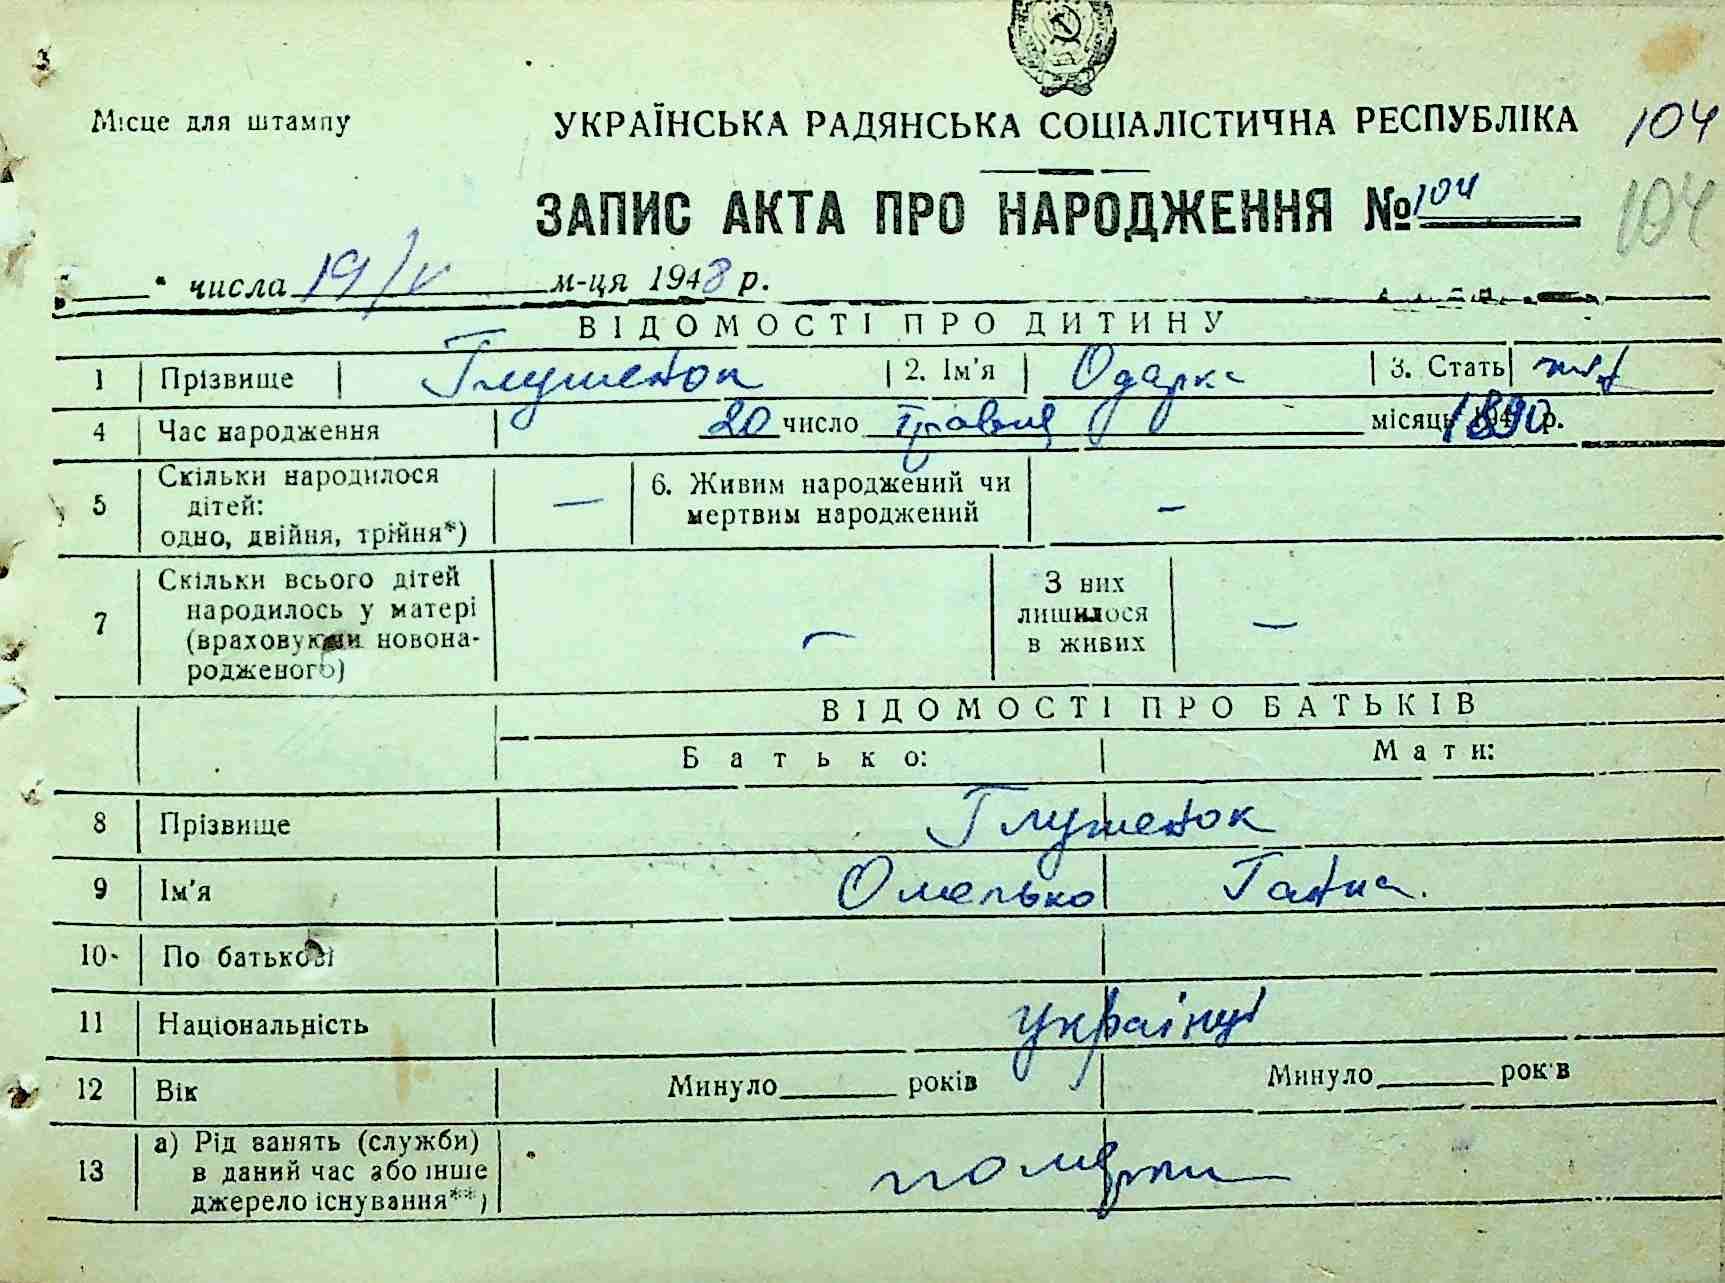 Місце для штампу
УКРАЇНСЬКА РАДЯНСЬКА СОЦІАЛІСТИЧНА РЕСПУБЛІКА 104
ЗАПИС АКТА ПРО НАРОДЖЕННЯ № 104 104
"___" числа 19/V м-ця 1948 р.
ВІДОМОСТІ ПРО ДИТИНУ
1 Прізвище Глушенок 2. Ім'я Одарка 3. Стать
4 Час народження 20 число травня місяць 1890 р.
5 Скільки народилося дітей: одно, двійня, трійня*) — 6. Живим народжений чи мертвим народжений —
7 Скільки всього дітей народилось у матері (враховуючи новонародженого) — З них лишилося в живих —
ВІДОМОСТІ ПРО БАТЬКІВ
Батько: Мати:
8 Прізвище Глушенок
9 Ім'я Омелько Ганна.
10 По батькові
11 Національність українці
12 Вік Минуло______ років Минуло______ років
13 а) Рід занять (служби) в даний час або інше джерело існування**) померли